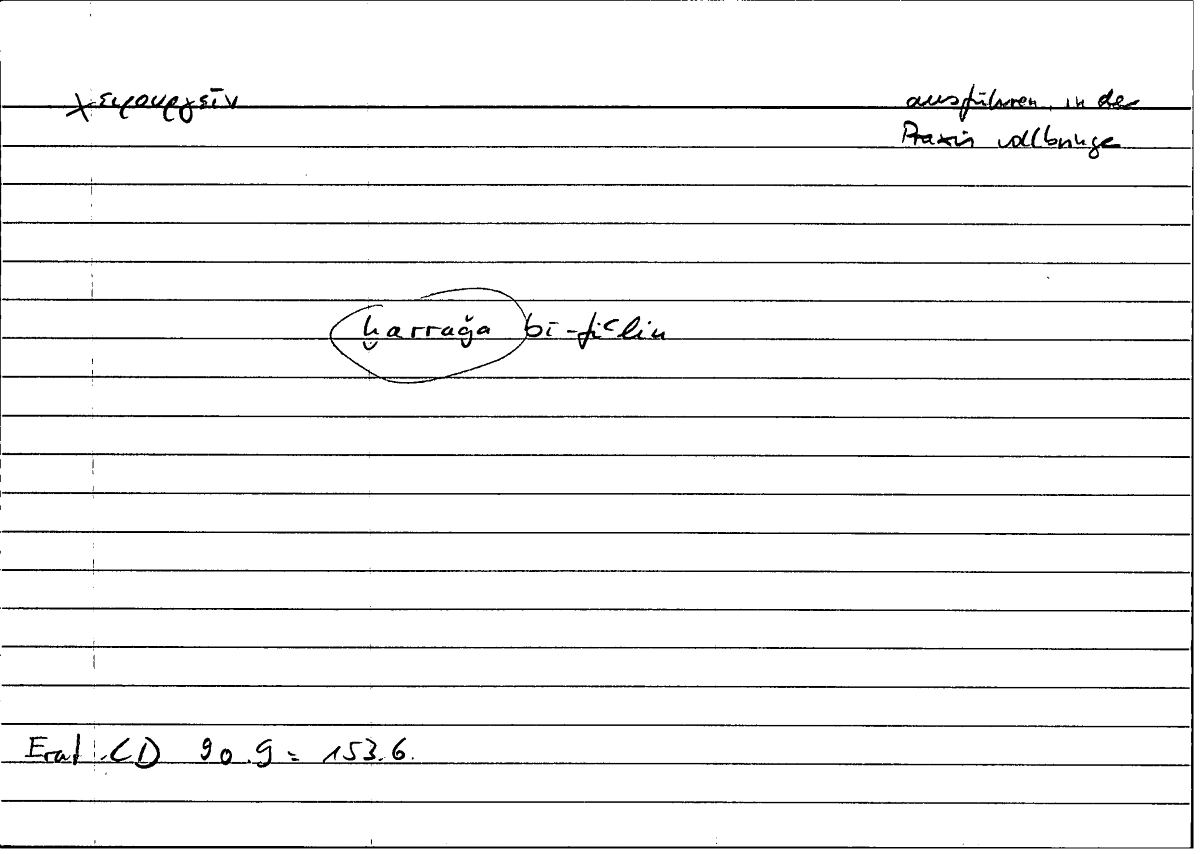 χειρουργεῖν
ausführen, in der
Praxis vollbringe
ḫarraǧa bi-fiʿlin
Erat. CD 90.9 = 153.6.